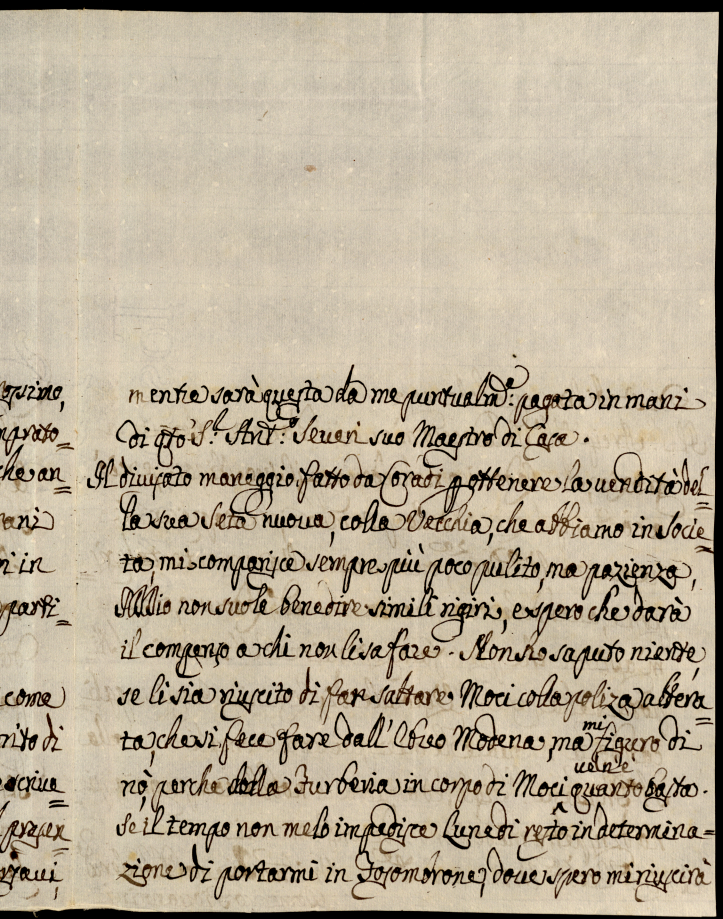 ossimo,
mprato=
che an=
rani
ri in
parti=
come
rito di
scrive=
presen=
ssavi,
mentre sarà questa da me puntualm.e pagata in mani
di qto Sr. Ant.o Severi suo Maestro di Casa.
Il divisato maneggio fatto da Coradi p ottenere la vendita del=
la sua seta nuova, colla Vecchia, che abbiamo in socie=
ta, mi comparisce sempre più poco pulito, ma pazienza,
Iddio non suole benedire simili rigiri, e spero che darà
il compenso a chi non li sa fare. Non ho saputo niente,
se li sia riuscito di far saltare Moci colla poliza altera=
ta, che si fece fare dall' Ebreo Modena, ma mi figuro di
nò, perche della Furberia in corpo di Moci ve n'è quanto basta.
se il tempo non me lo impedisce Lunedi resto in determina=
zione di portarmi in Fosombrone, dove spero mi riuscirà